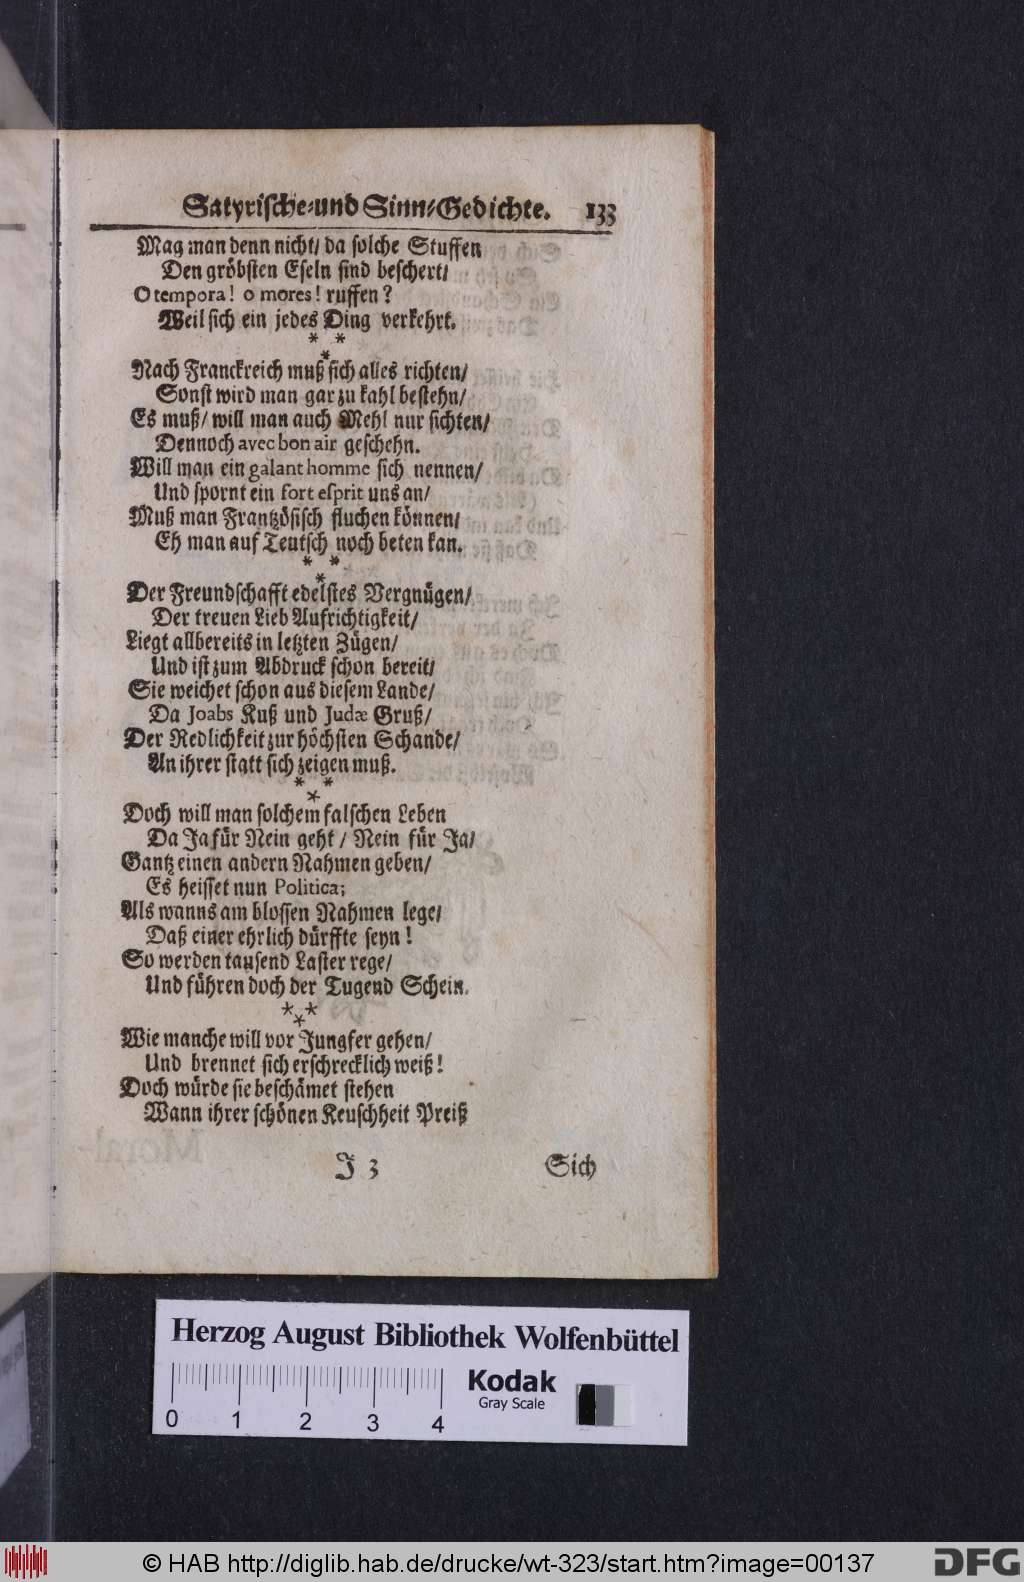 Satyrische-und Sinn-Gedichte. 133
Mag man denn nicht/ da solche Stuffen
Den gröbsten Eseln sind beschert/
O tempora! o mores! ruffen?
Weil sich ein jedes Ding verkehrt.
* * *
Nach Franckreich muß sich alles richten/
Sonst wird man gar zu kahl bestehn/
Es muß/ will man auch Mehl nur sichten/
Dennoch avec bon air geschehn.
Will man ein galant homme sich nennen/
Und spornt ein fort esprit uns an/
Muß man Frantzösisch fluchen können/
Eh man auf Teutsch noch beten kan.
* * *
Der Freundschafft edelstes Vergnügen/
Der treuen Lieb Aufrichtigkeit/
Liegt allbereits in letzten Zügen/
Und ist zum Abdruck schon bereit/
Sie weichet schon aus diesem Lande/
Da Joabs Kuß und Judæ Gruß/
Der Redlichkeit zur höchsten Schande/
An ihrer statt sich zeigen muß.
* * *
Doch will man solchem falschen Leben
Da Ja für Nein geht / Nein für Ja/
Gantz einen andern Nahmen geben/
Es heisset nun Politica;
Als wanns am blossen Nahmen lege/
Daß einer ehrlich dürffte seyn!
So werden tausend Laster rege/
Und führen doch der Tugend Schein.
* * *
Wie manche will vor Jungfer gehen/
Und brennet sich erschrecklich weiß!
Doch würde sie beschämet stehen
Wann ihrer schönen Keuschheit Preiß
J 3 Sich
Herzog August Bibliothek Wolfenbüttel
Kodak
Gray Scale
0 1 2 3 4
© HAB http://diglib.hab.de/drucke/wt-323/start.htm?image=00137
DFG